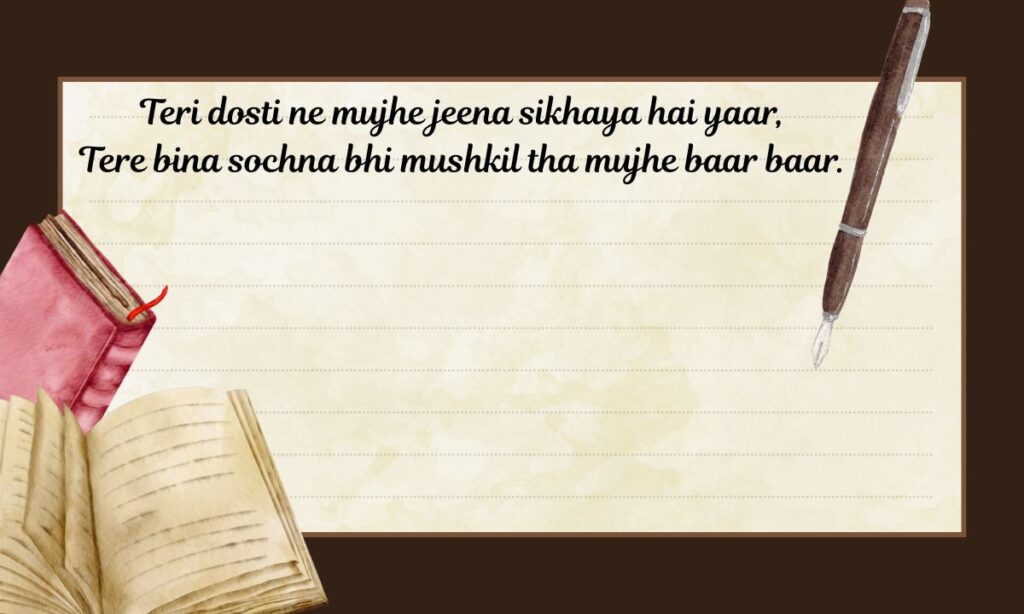 Teri dosti ne mujhe jeena sikhaya hai yaar,
Tere bina sochna bhi mushkil tha mujhe baar baar.